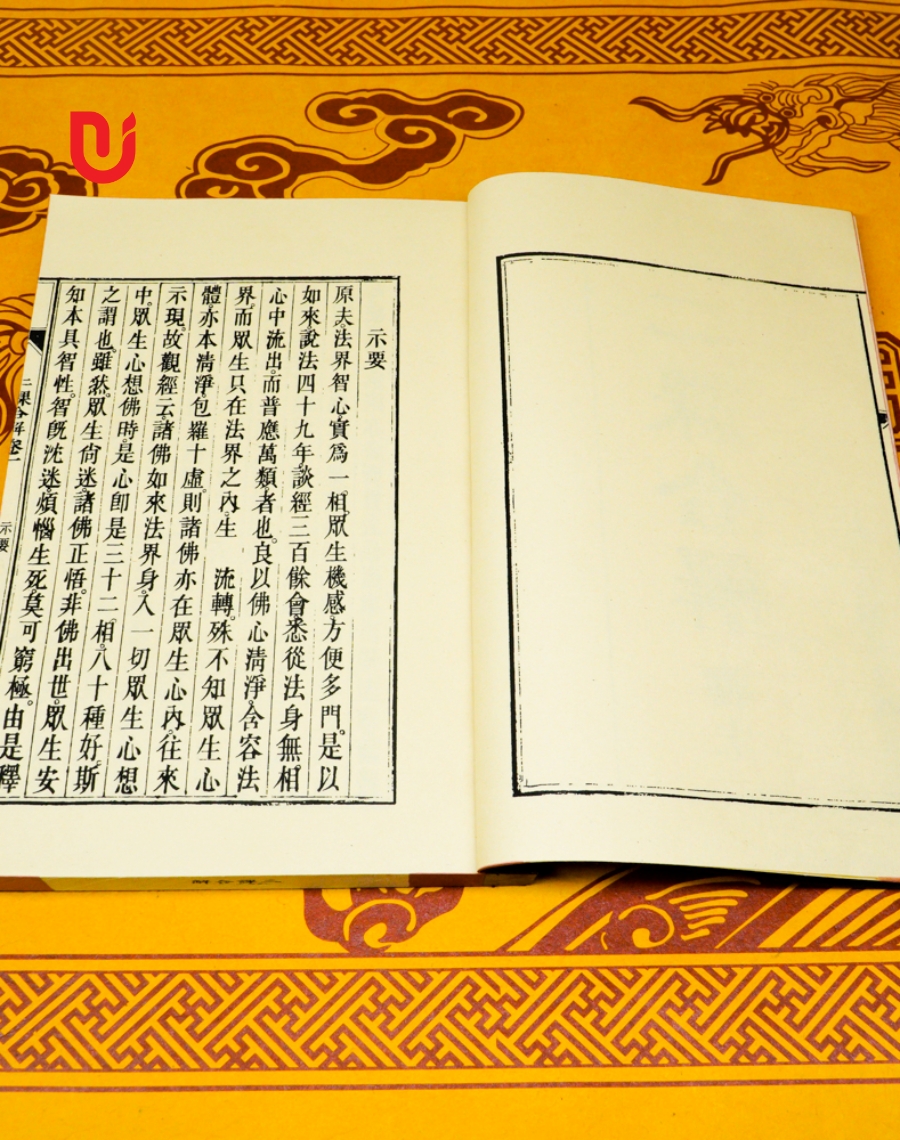 示要
原夫法界智心。實爲一相。眾生機感。方便多門。是以
如來說法四十九年。談經三百餘會。悉從法身無相
心中流出。而普應萬類者也。良以佛心清淨。含容法
界。而眾生只在法界之內。生 流轉。殊不知眾生心
體。亦本清淨。包羅十虛。則諸佛亦在眾生心內。往來
示現。故觀經云。諸佛如來法界身。入一切眾生心想
中。眾生心想佛時。是心即是三十二相。八十種好。斯
之謂也。雖然。眾生尙迷。諸佛正悟。非佛出世。眾生安
知本具智性。智旣沈迷。煩惱生死。莫可窮極。由是釋
二課合解卷一
示要